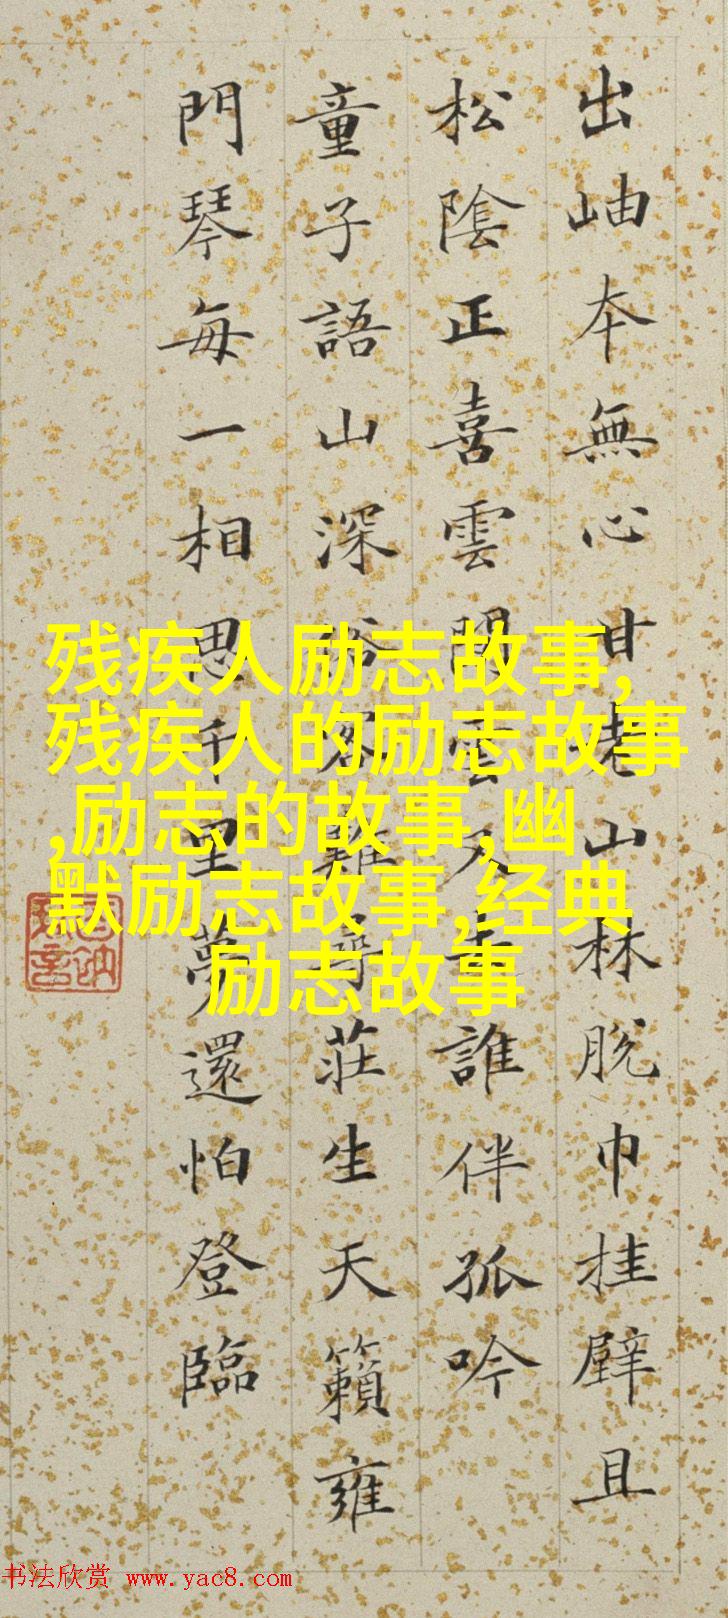 出岫本無心甘老山林脫巾挂壁且
松陰正喜雲閒雲又去誰伴孤吟
童子語山深俗客難尋莊生天籟雍
門琴每一相思千里夢還怕登臨
残疾人励志故事,
残疾人的励志故事
,励志的故事,幽
默励志故事,经典
励志故事
书法欣赏 www.yac8.com